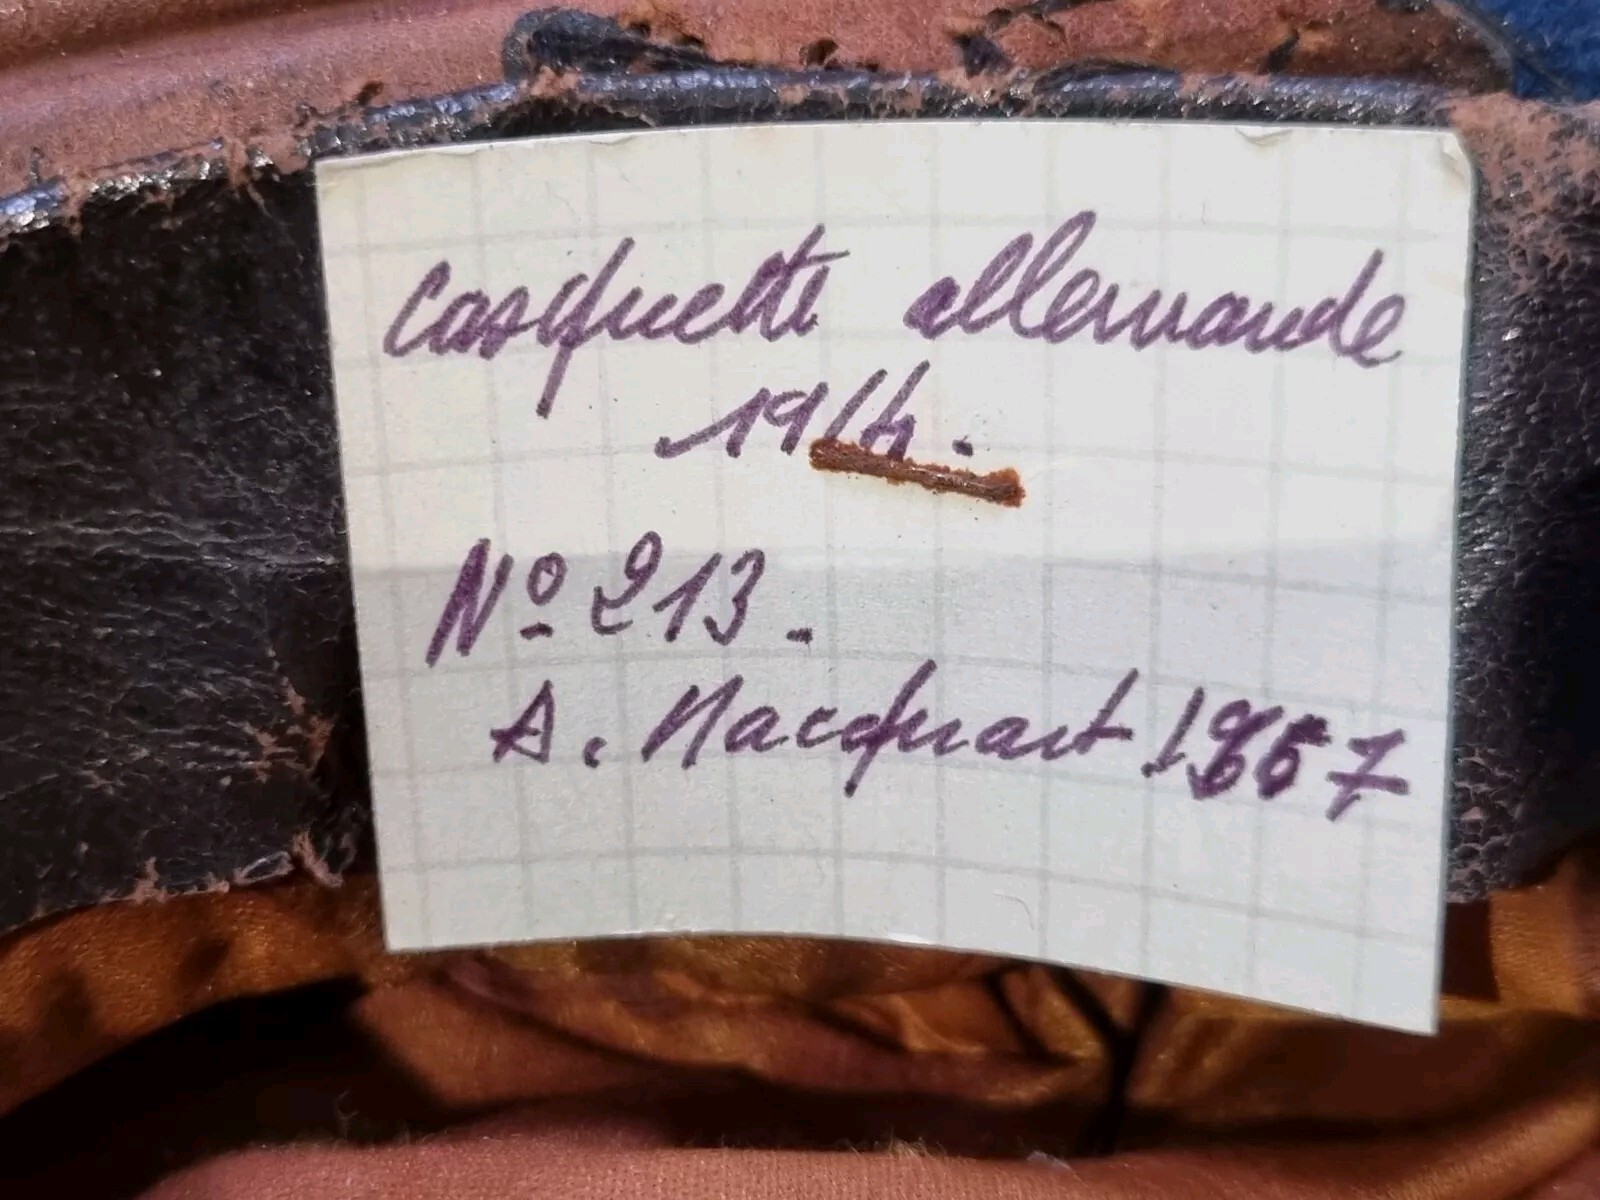 Casquette allemande
1914.
Nº 213.
A. Macquart 1967